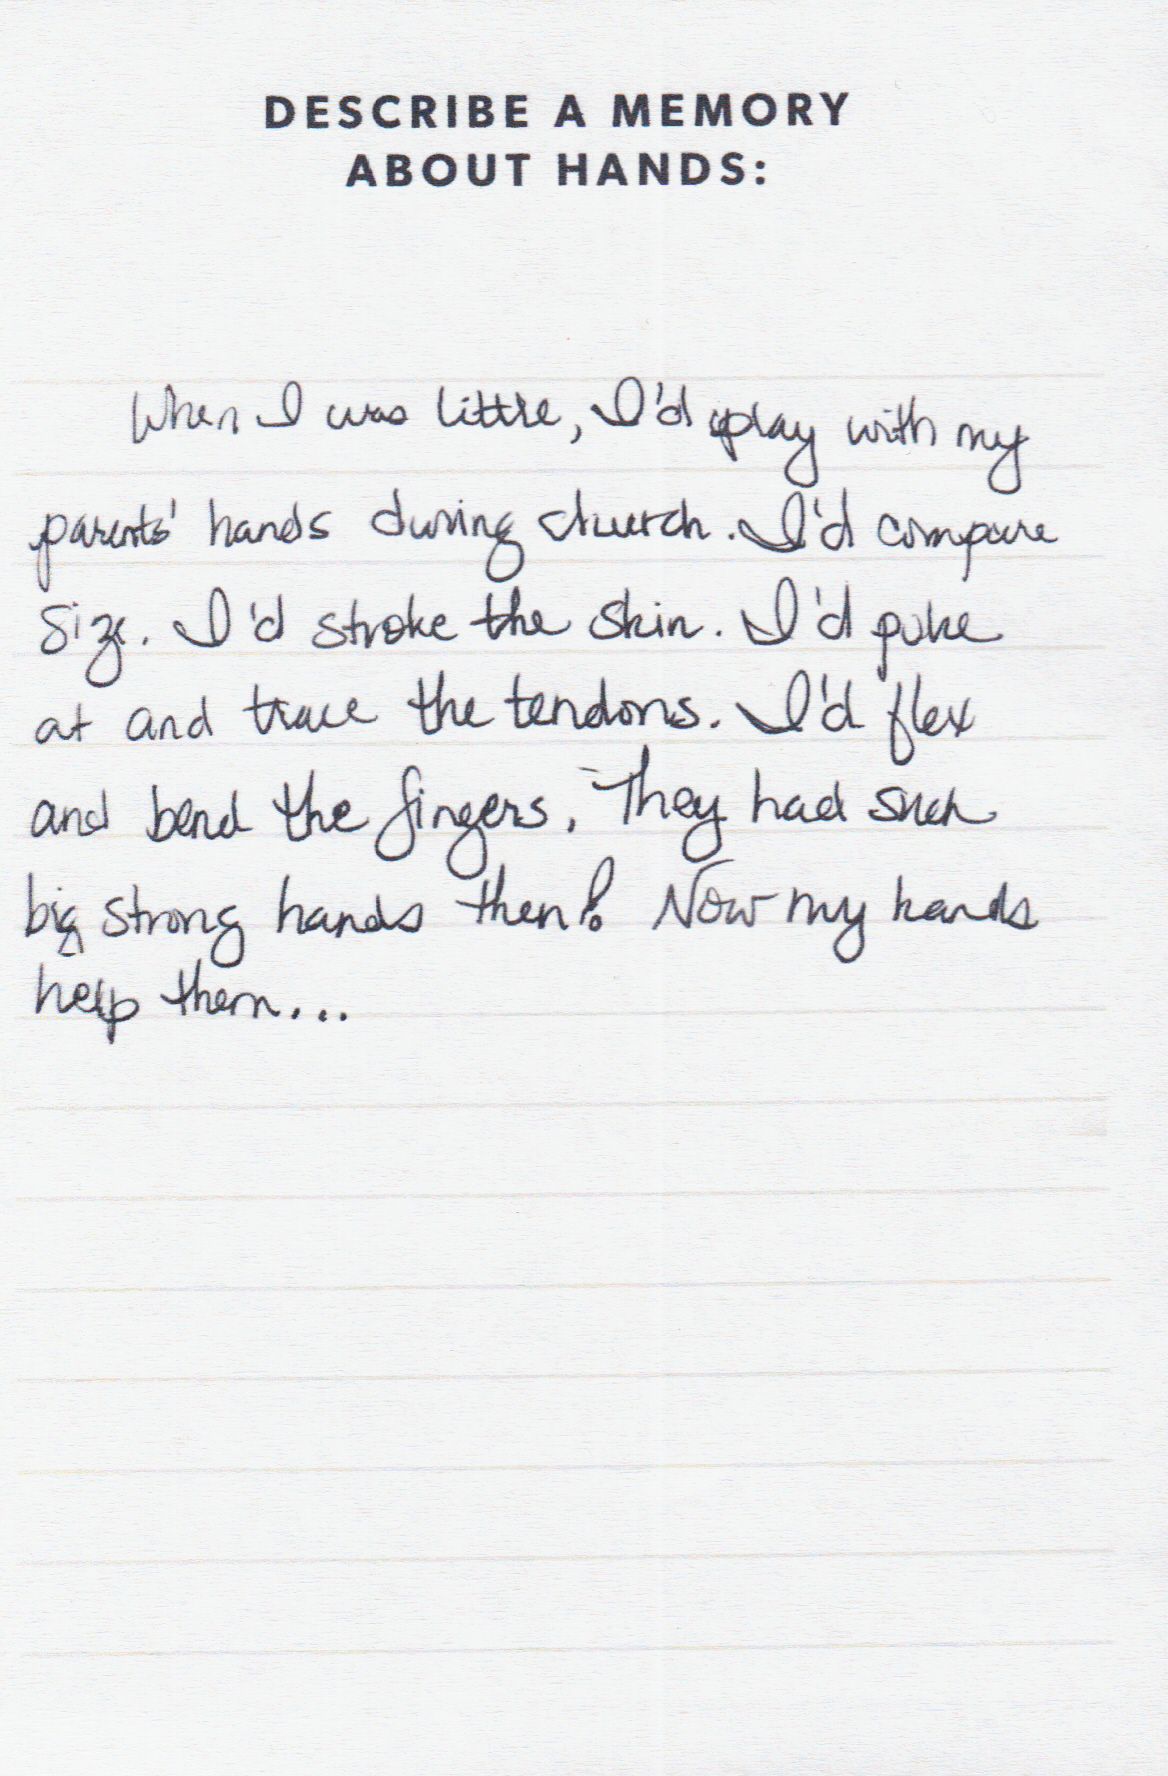 DESCRIBE A MEMORY
ABOUT HANDS:
When I was little, I'd play with my
parents' hands during church. I'd compare
size. I'd stroke the skin. I'd poke
at and trace the tendons. I'd flex
and bend the fingers. They had such
big strong hands then! Now my hands
help them...